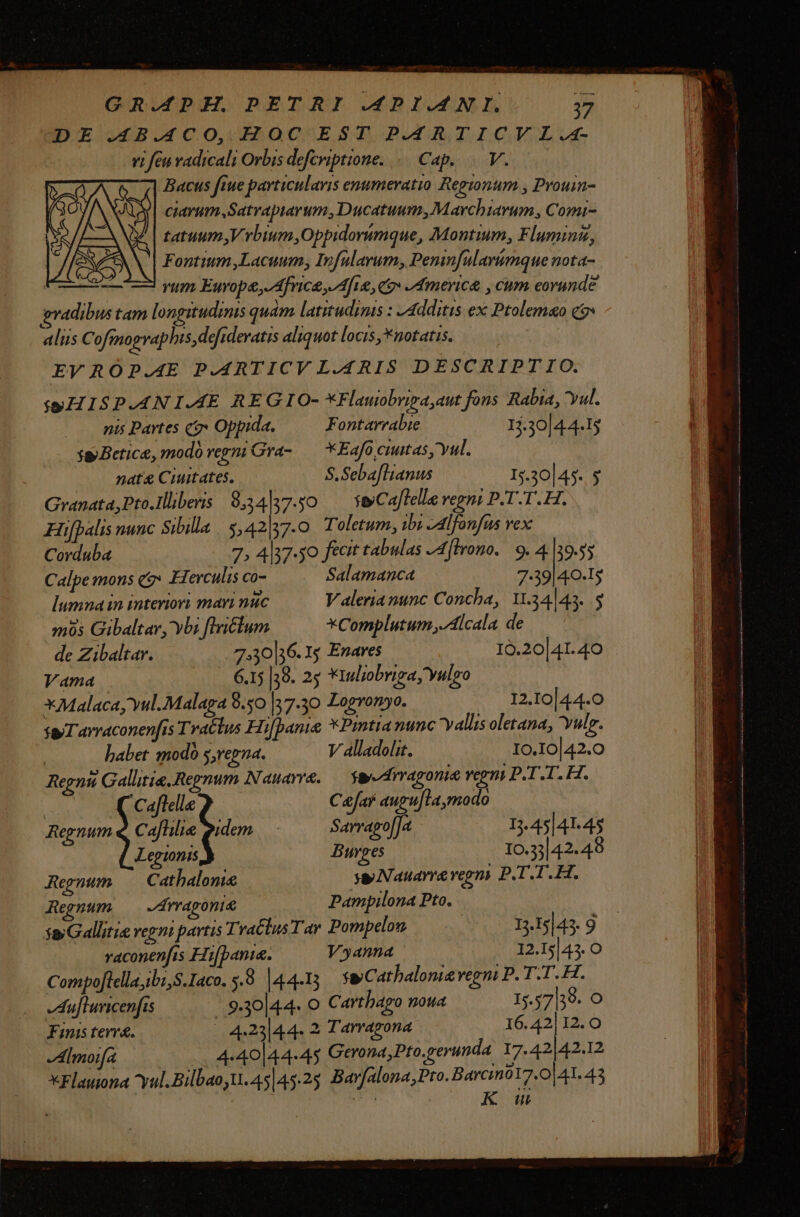 GRAPH. PETRI APIANI. 37
DE ABACO, HOC EST PARTICVLA-
ri seu radicali Orbis descriptione. Cap. V.
Bacus siue particularis enumeratio Regionum, Prouin-
ciarum, Satrapiarum, Ducatuum, Marchiarum, Comi-
tatuum, Vrbium, Oppidorúmque, Montium, Fluminū,
Fontium, Lacuum, Insularum, Peninsularúmque nota-
rum Europæ, Africæ, Asiæ, & Americæ, cum eorundē
gradibus tam longitudinis quàm latitudinis: Additis ex Ptolemæo &
aliis Cosmographis, desideratis aliquot locis, *notatis.
EVROPAE PARTICVLARIS DESCRIPTIO.
HISPANIAE REGIO-
nis Partes & Oppida.
Beticæ, modò regni Gra-
natæ Ciuitates.
Granata, Pto. Illiberis 8.34|37.50
Hispalis nunc Sibilla 5,42|37.0
Corduba 7, 4|37.50
Calpe mons & Herculis co-
lumna in interiori mari nūc
mōs Gibaltar, vbi strictum
de Zibaltar. 7,30|36.15
Vama 6.15|38. 25
*Malaca, vul. Malaga 8.50|37.30
Tarraconensis Tractus Hispaniæ
habet modò 5, regna.
Regnū Gallitiæ. Regnum Nauarræ.
Regnum { Castellæ Castiliæ Legionis } idem
Regnum Cathaloniæ
Regnum Arragoniæ
Gallitiæ regni partis Tractus Tar
raconensis Hispaniæ.
Compostella, ibi, S. Iaco. 5.8 |44.13
Austuricensis 9.30|44. 0
Finis terræ. 4.23|44. 2
Almoisā 4.40|44.45
*Flauiona vul. Bilbao, 11.45|45.25
*Flauiobriga, aut fons Rabia, vul.
Fontarrabie 13.30|44.15
*Easo ciuitas, vul.
S. Sebastianus 15.30|45. 5
Castellæ regni P.T.T.H.
Toletum, ibi Alfonsus rex
fecit tabulas Astrono. 9. 4|39.55
Salamanca 7.39|40.15
Valeria nunc Concha, 11.34|43. 5
*Complutum, Alcala de
Enares 10.20|41.40
*Iuliobriga, vulgo
Logronyo. 12.10|44.0
*Pintia nunc vallis oletana, vulg.
Valladolit. 10.10|42.0
Arragoniæ regni P.T.T.H.
Cæsar augusta, modo
Sarragossa 13.45|41.45
Burges 10.33|42.48
Nauarræ regni P.T.T.H.
Pampilona Pto.
Pompelon 13.15|43. 9
Vyanna 12.15|43. 0
Cathaloniæ regni P.T.T.H.
Carthago noua 15.57|38. 0
Tarragona 16.42|12. 0
Gerona, Pto. gerunda 17.42|42.12
Barsalona, Pto. Barcino 17.0|41.43
K iii